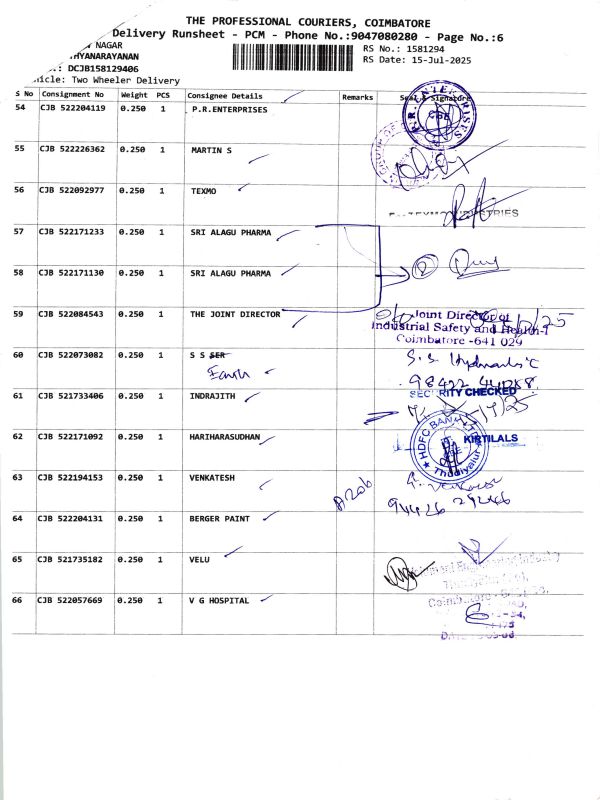 THE PROFESSIONAL COURIERS, COIMBATORE
Delivery Runsheet - PCM - Phone No.:9047080280 - Page No.:6
NAGAR
RS No.: 1581294
THYANARAYANAN
RS Date: 15-Jul-2025
.: DCJB158129406
hicle: Two Wheeler Delivery
S No Consignment No Weight PCS Consignee Details Remarks Seal & Signature
54 CJB 522204119 0.250 1 P.R.ENTERPRISES
55 CJB 522226362 0.250 1 MARTIN S
56 CJB 522092977 0.250 1 TEXMO
57 CJB 522171233 0.250 1 SRI ALAGU PHARMA
58 CJB 522171130 0.250 1 SRI ALAGU PHARMA
2
59 CJB 522084543 0.250 1 THE JOINT DIRECTOR
Joint Director of
Industrial Safety and Health-I
Coimbatore -641 029
60 CJB 522073082 0.250 1 S S SER
S.S. Hydraulic
61 CJB 521733406 0.250 1 INDRAJITH
SECURITY CHECKED
62 CJB 522171092 0.250 1 HARIHARASUDHAN
HDFC BANK LTD
Thudiyalur
KIRTILALS
63 CJB 522194153 0.250 1 VENKATESH
64 CJB 522204131 0.250 1 BERGER PAINT
65 CJB 521735182 0.250 1 VELU
66 CJB 522057669 0.250 1 V G HOSPITAL